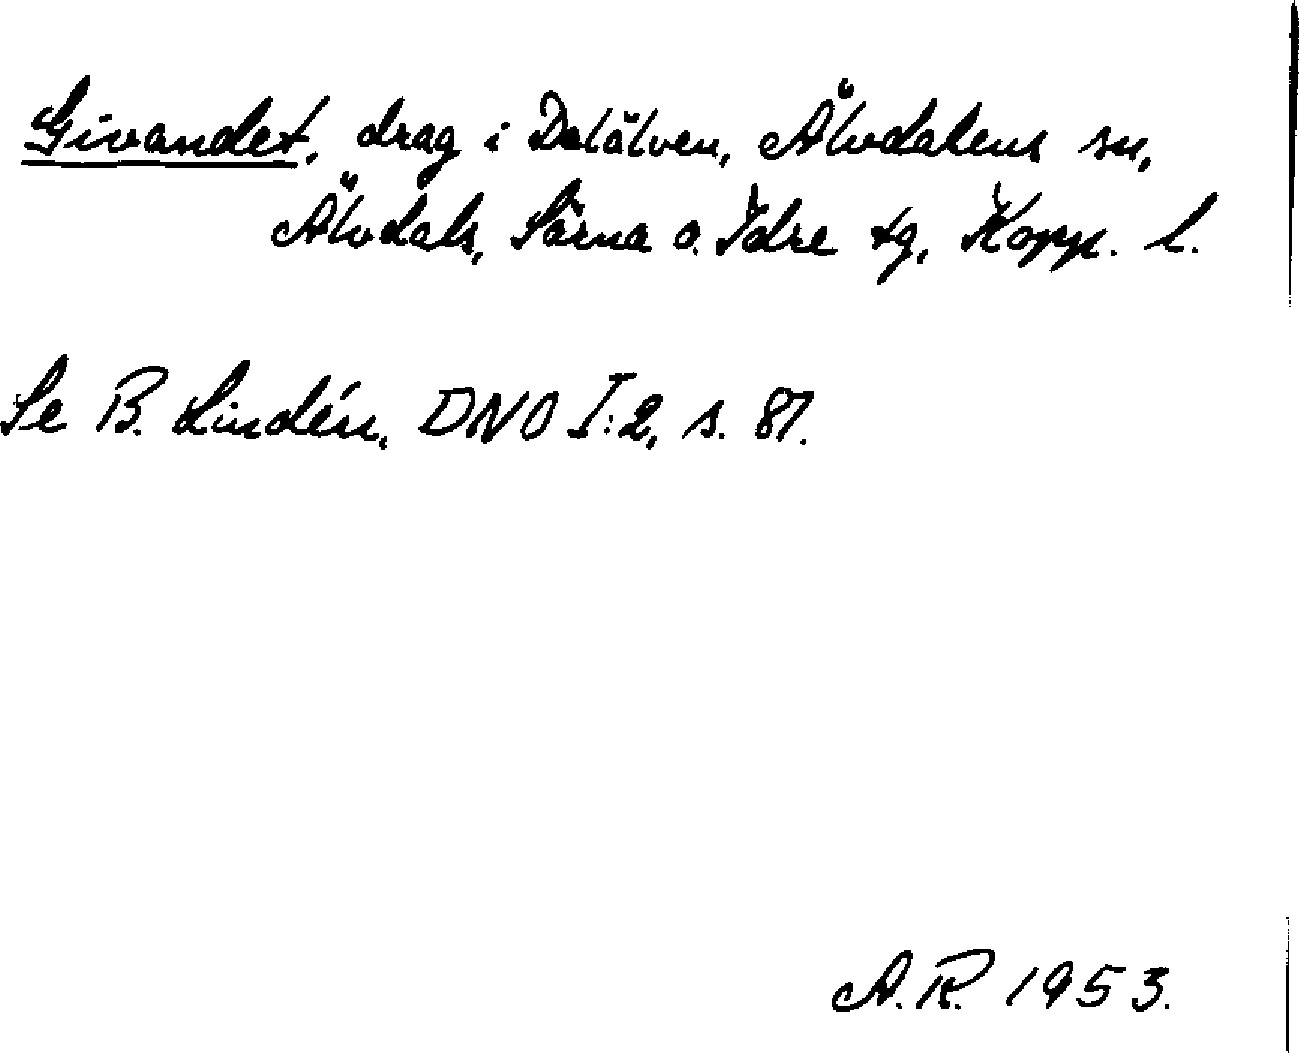 Givandet, drag i Dalälven, Älvdalens sn,
Älvdals, Särna o. Idre tg, Kopp. l.
Se B. Lindén, DNO I:2, s. 87.
A.R. 1953.